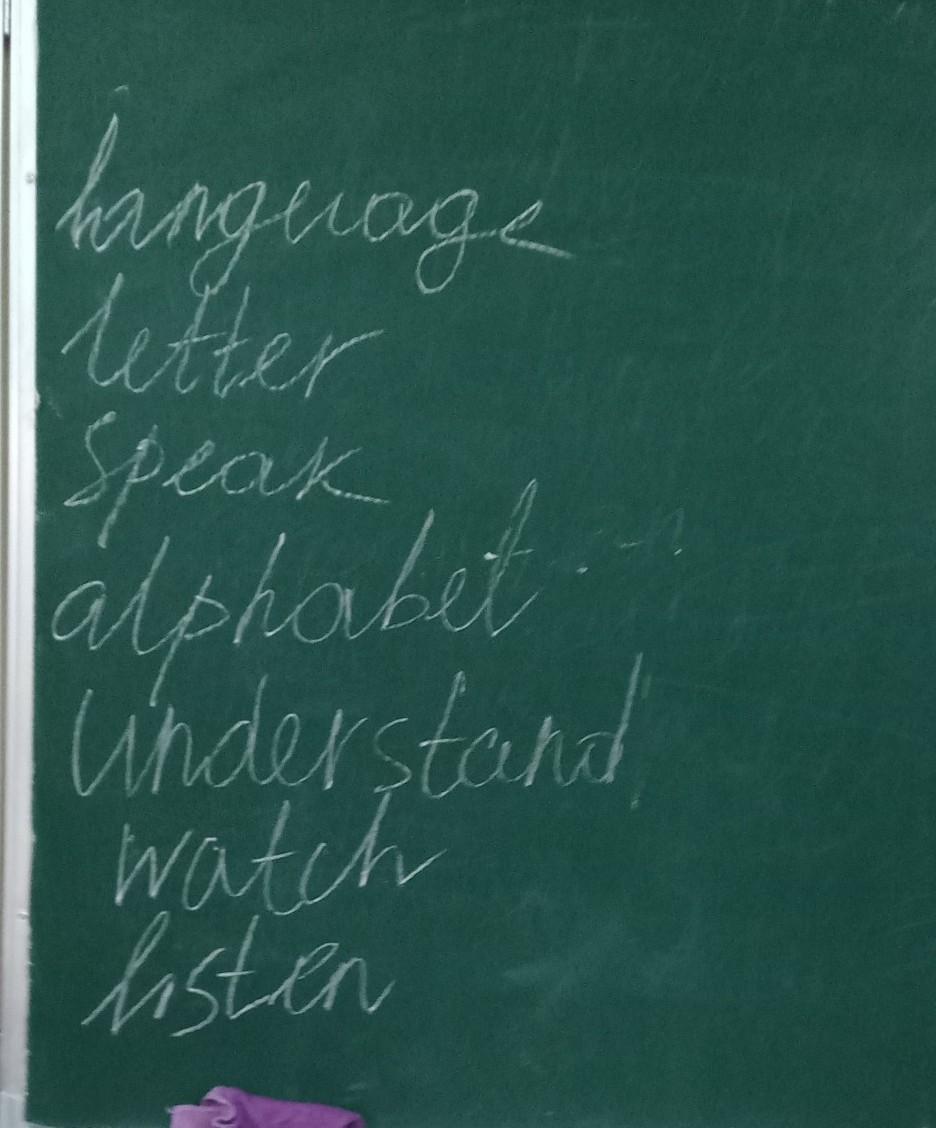 language
letter
speak
alphabet
understand
watch
listen